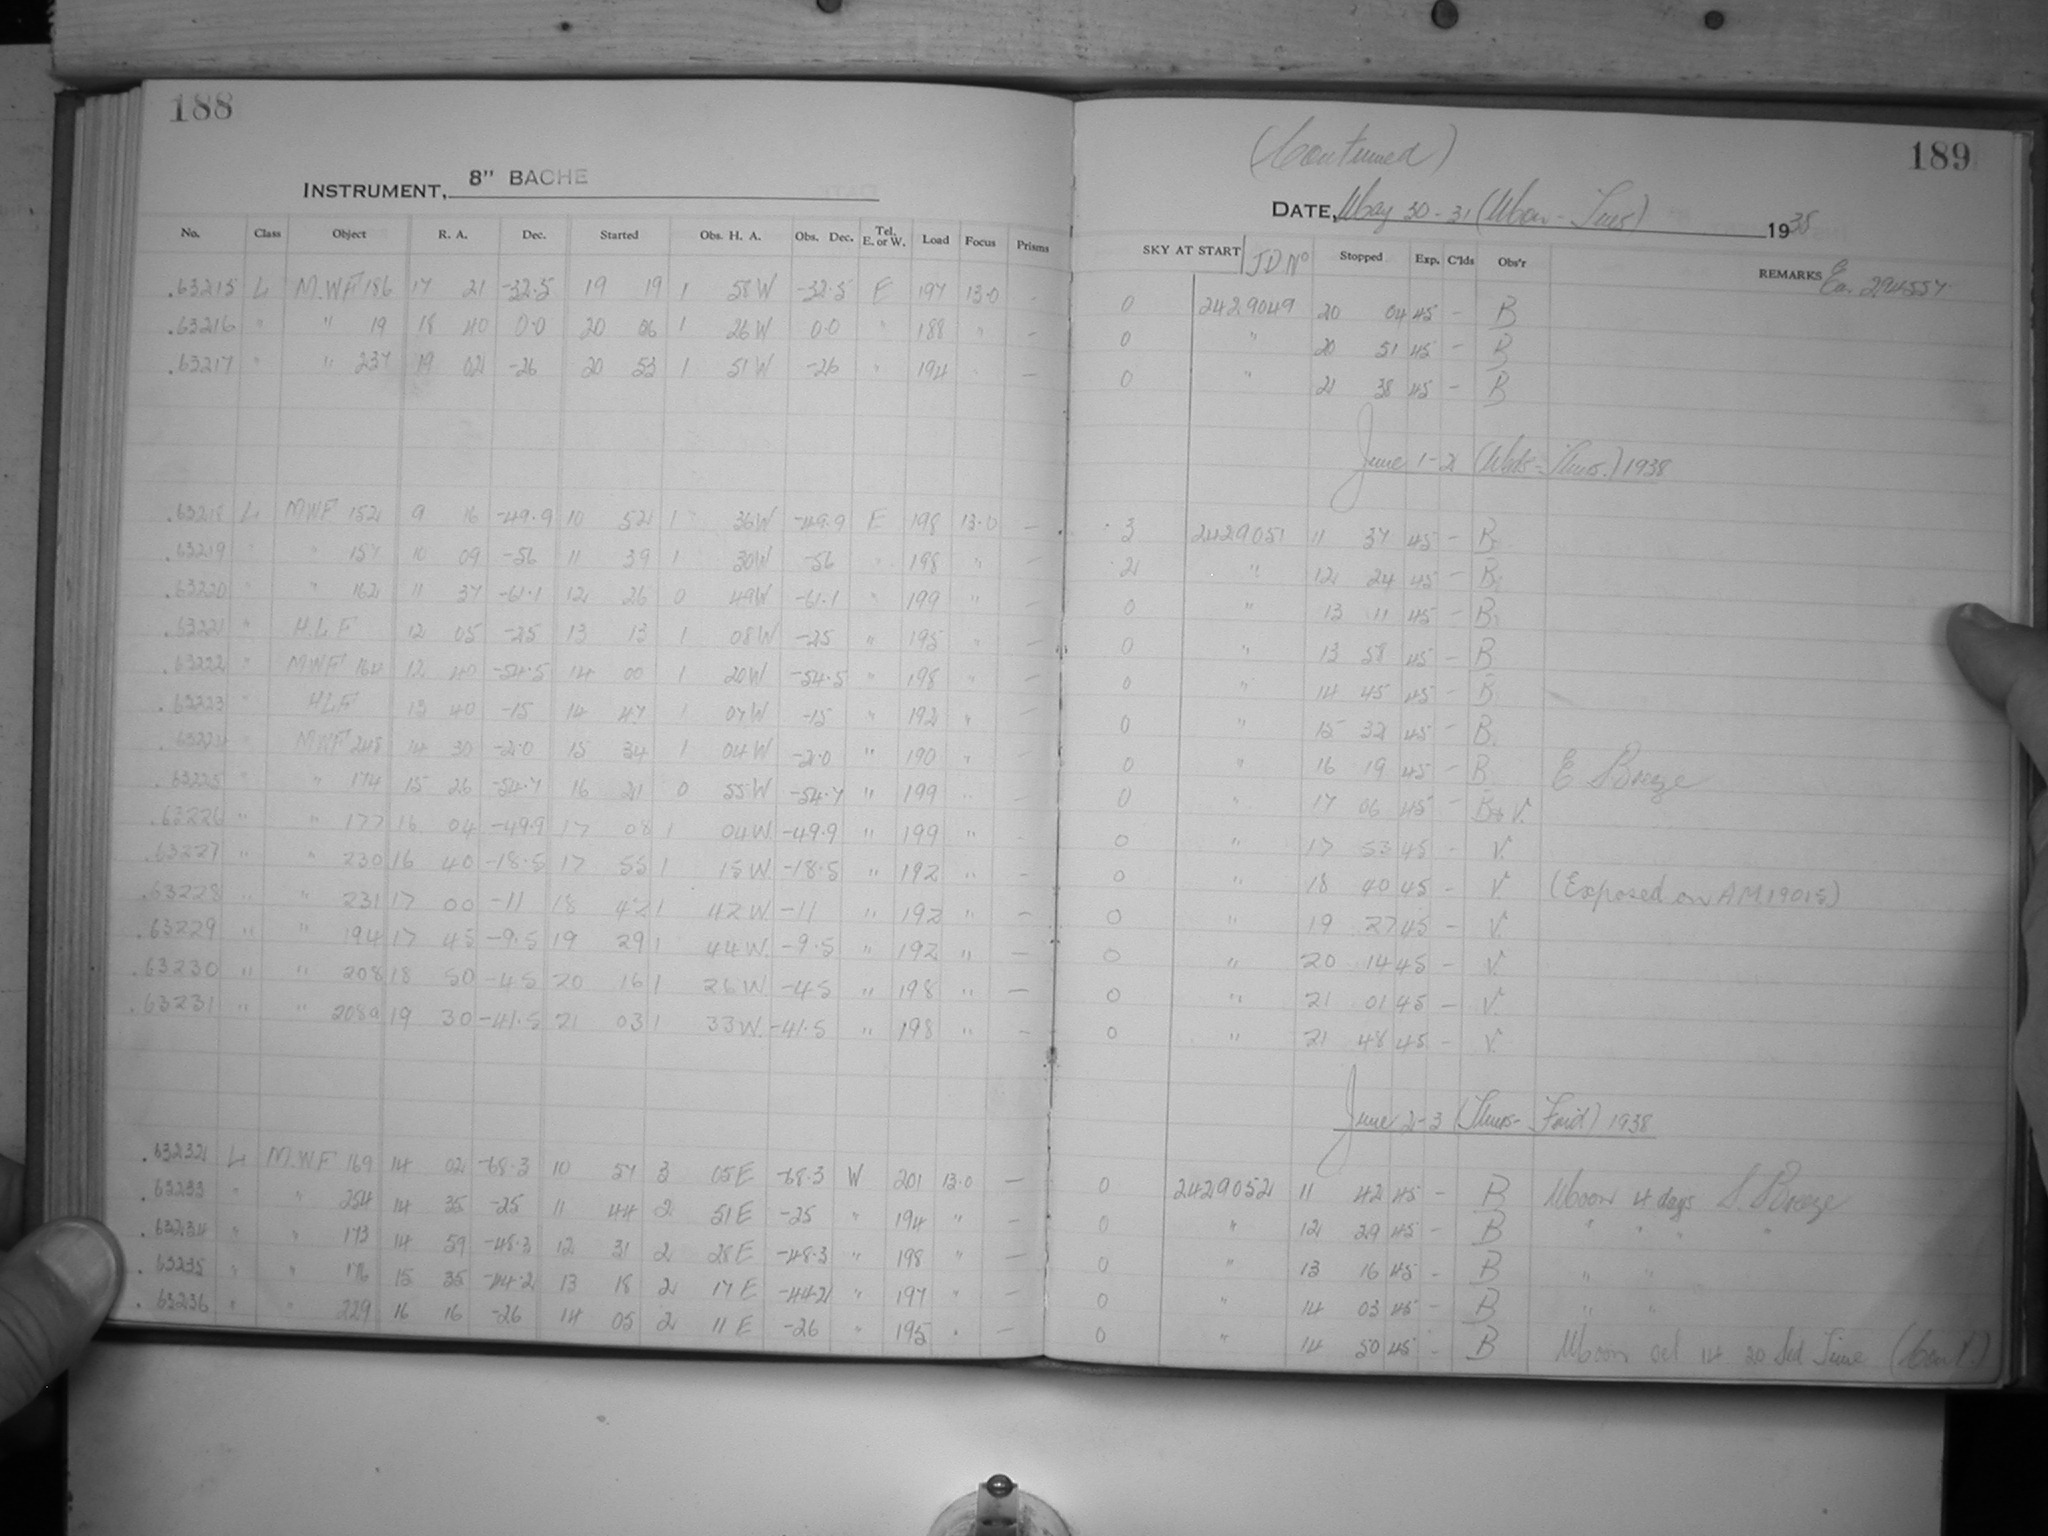 188
INSTRUMENT, 8" BACHE
No. Class Object R. A. Dec. Started Obs. H. A. Obs. Dec. Tel. E. or W. Load Focus Prisms
.63215 L M.WF 186 17 21 -32.5 19 19 1 58W -32.5 E 197 13.0 -
.63216 " " 19 18 40 0.0 20 06 1 26W 0.0 " 188 " -
.63217 " " 237 19 02 -26 20 53 1 51W -26 " 194 " -
.63218 L MWF 152 9 16 -49.9 10 52 1 36W -49.9 E 198 13.0 -
.63219 " " 157 10 09 -56 11 39 1 30W -56 " 198 " -
.63220 " " 162 11 37 -61.1 12 26 0 49W -61.1 " 199 " -
.63221 " H.L.F 12 05 -25 13 13 1 08W -25 " 195 " -
.63222 " MWF 164 12 40 -54.5 14 00 1 20W -54.5 " 198 " -
.63223 " HLF 13 40 -15 14 47 1 07W -15 " 192 " -
.63224 " MWF 248 14 30 -2.0 15 34 1 04W -2.0 " 190 " -
.63225 " " 174 15 26 -54.7 16 21 0 55W -54.7 " 199 " -
.63226 " " 177 16 04 -49.9 17 08 1 04W -49.9 " 199 " -
.63227 " " 230 16 40 -18.5 17 55 1 15W -18.5 " 192 " -
.63228 " " 231 17 00 -11 18 42 1 42W -11 " 192 " -
.63229 " " 194 17 45 -9.5 19 29 1 44W -9.5 " 192 " -
.63230 " " 208 18 50 -45 20 16 1 26W -45 " 198 " -
.63231 " " 208a 19 30 -41.5 21 03 1 33W -41.5 " 198 " -
.63232 L M.WF 169 14 02 -68.3 10 57 3 05E -68.3 W 201 13.0 -
.63233 " " 254 14 35 -25 11 44 2 51E -25 " 194 " -
.63234 " " 173 14 59 -48.3 12 31 2 28E -48.3 " 198 " -
.63235 " " 176 15 35 -44.2 13 18 2 17E -44.2 " 197 " -
.63236 " " 229 16 16 -26 14 05 2 11E -26 " 195 " -
(Continued)
189
DATE, May 30-31 (Mon-Tues) 1938
SKY AT START JD No Stopped Exp. C'lds Obs'r REMARKS
0 2429049 20 04 45 - B
0 " 20 51 45 - B
0 " 21 38 45 - B
June 1-2 (Weds-Thurs.) 1938
3 2429051 11 37 45 - B
2 " 12 24 45 - B
0 " 13 11 45 - B
0 " 13 58 45 - B
0 " 14 45 45 - B
0 " 15 32 45 - B
0 " 16 19 45 - B E Breeze
0 " 17 06 45 - B & V.
0 " 17 53 45 - V.
0 " 18 40 45 - V. (Exposed on AM 19015)
0 " 19 27 45 - V.
0 " 20 14 45 - V.
0 " 21 01 45 - V.
0 " 21 48 45 - V.
June 2-3 (Thurs-Frid) 1938
0 2429052 11 42 45 - B Moon 4 days S. Breeze
0 " 12 29 45 - B " " " "
0 " 13 16 45 - B " "
0 " 14 03 45 - B " "
0 " 14 50 45 - B Moon set 14 20 Sid Time (Cont.)